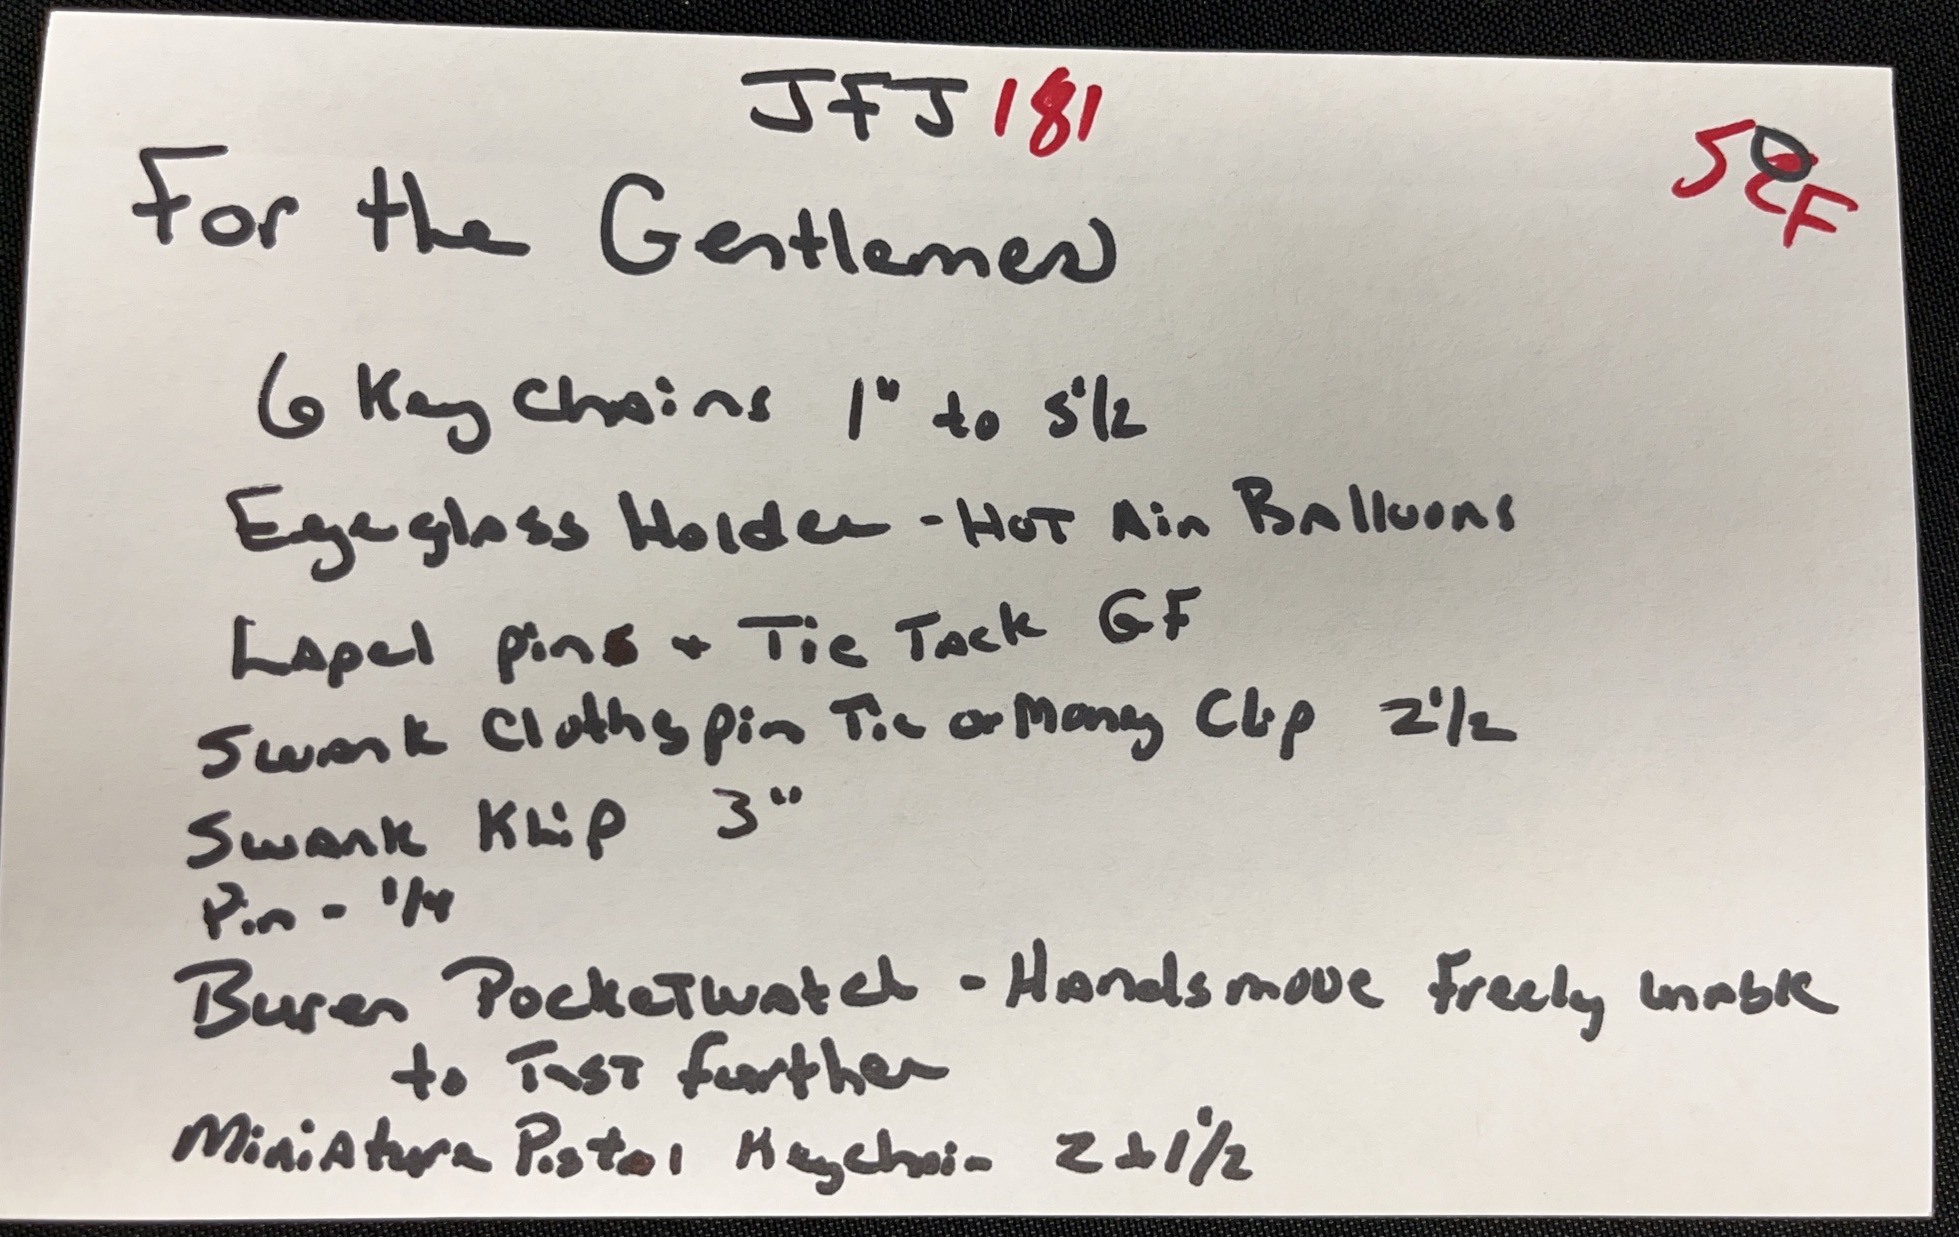 JFJ 181
For the Gentlemen
6 Keychains 1" to 5 1/2
Eyeglass Holder - HOT Air Balloons
Lapel pins + Tie Tack GF
Swank Clothspin Tie or Money Clip 2 1/2
Swank Klip 3"
Pin - 1/4
Buren Pocketwatch - Hands move Freely unable
to Test further
Miniature Pistol Keychain 2 + 1 1/2